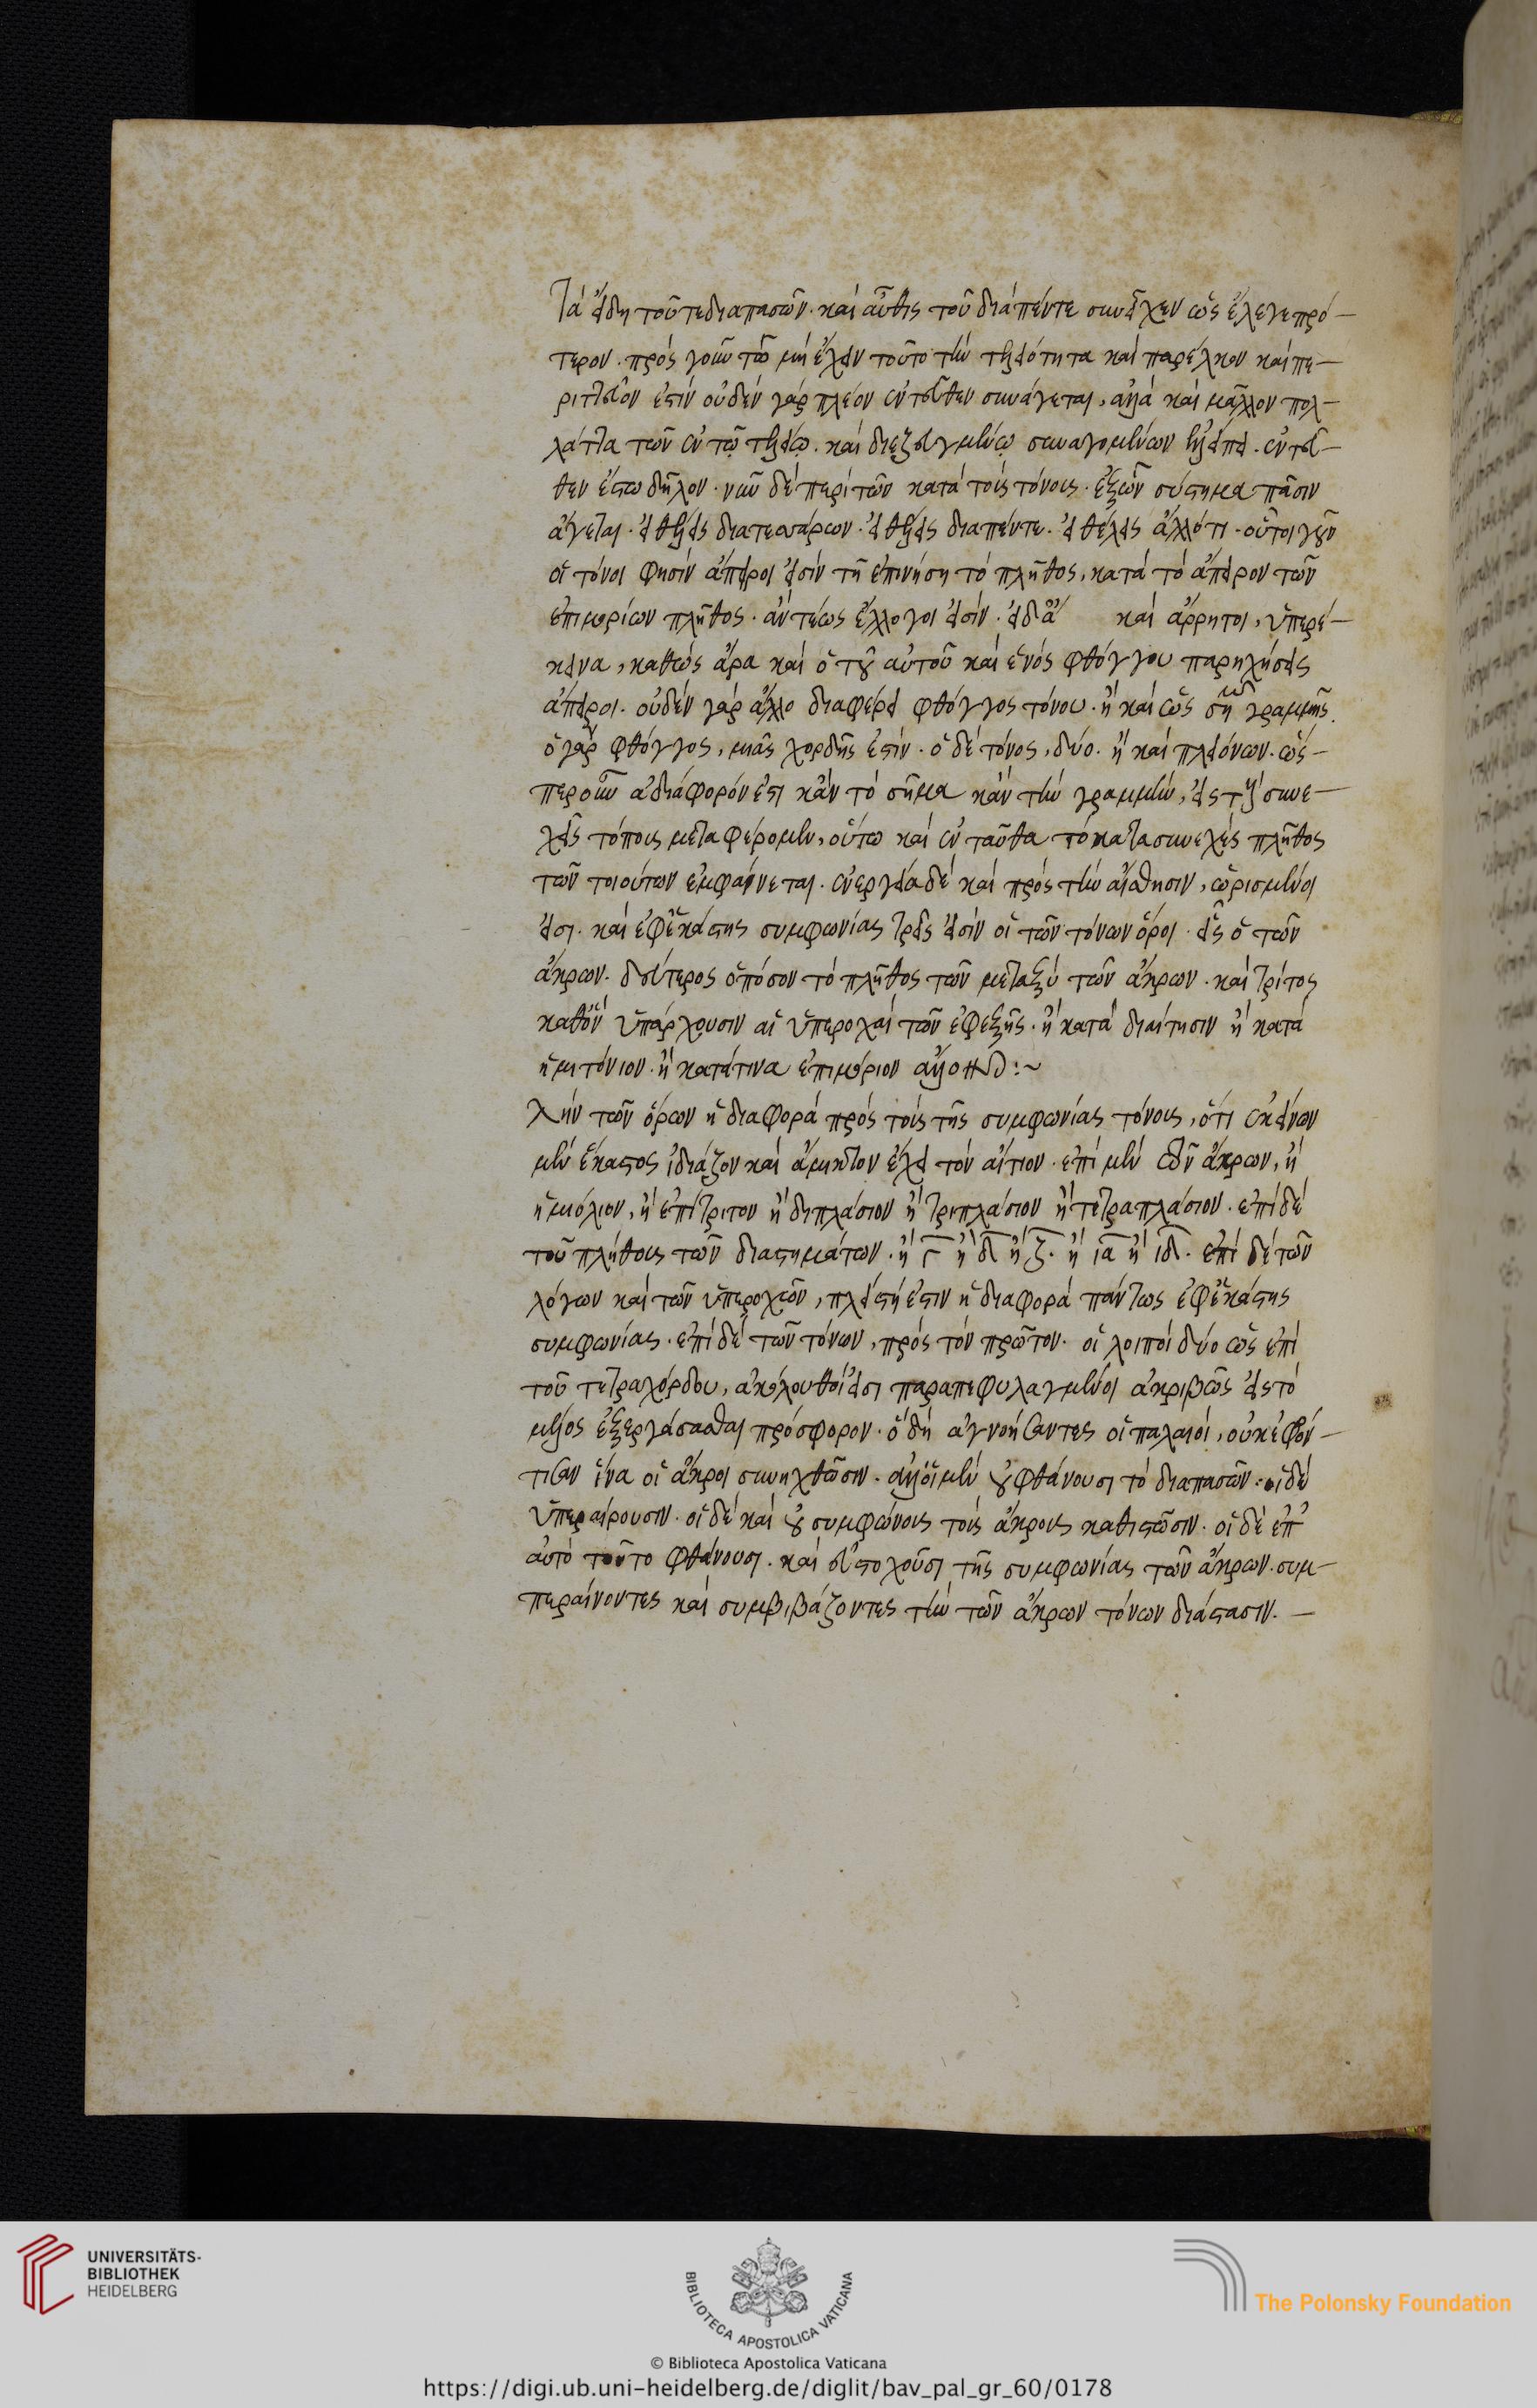 Τὰ εἴδη τοῦ τε διαπασῶν· καὶ αὖθις τοῦ διὰ πέντε συνεῖχεν ὡς ἔλεγε πρό-
τερον· πρὸς γοῦν τῶ μὴ ἔχειν τοῦτο τὴν τελειότητα καὶ παρέλκον καὶ πε-
ριττεῦον ἐστὶν οὐδὲν γὰρ πλέον ἐντεῦθεν συνάγεται, ἀλλὰ καὶ μᾶλλον πολ-
λάττα τῶν ἐν τῷ τελείῳ· καὶ διεζευγμένῳ συναγομένων ἐλλείπει· ἐντεῦ-
θεν ἔστω δῆλον· νῦν δὲ περὶ τῶν κατὰ τοὺς τόνους· ἐξ ὧν σύστημα πᾶσιν
ἄγεται· εἰ θέλεις διατεσσάρων· εἰ θέλεις διαπέντε· εἰ θέλεις ἄλλό τι· οὗτοι γοῦν
οἱ τόνοι φησὶν ἄπειροι εἰσὶν τῇ ἐπινήσῃ τὸ πλῆθος, κατὰ τὸ ἄπειρον τῶν
ἐπιμορίων πλῆθος· ἂν τέως ἔλλογοι εἰσίν· εἰ δ' καὶ ἄρρητοι, ὑπερέ-
κεινα, καθὼς ἄρα καὶ ὁ τοῦ αὐτοῦ καὶ ἑνὸς φθόγγου παρηχήσεις
ἄπειροι· οὐδὲν γὰρ ἄλλο διαφέρει φθόγγος τόνου· ἢ καὶ ὡς γραμμῆς.
ὁ γὰρ φθόγγος, μιᾶς χορδῆς ἐστίν· ὁ δὲ τόνος, δύο· ἢ καὶ πλειόνων· ὥσ-
περ οὖν ἀδιάφορόν ἐστι κἂν τὸ σῆμα κἂν τὴν γραμμὴν, εἰς τοὺς συνε-
χεῖς τόπους μεταφέρομεν, οὕτω καὶ ἐνταῦθα τὸ κατασυνεχὲς πλῆθος
τῶν τοιούτων ἐμφαίνεται· ἐνεργείᾳ δὲ καὶ πρὸς τὴν αἴσθησιν, ὡρισμένοι
εἰσι· καὶ ἐφ' ἑκάστης συμφωνίας τρεῖς εἰσὶν οἱ τῶν τόνων ὅροι· εἷς ὁ τῶν
ἄκρων· δεύτερος ὁπόσον τὸ πλῆθος τῶν μεταξὺ τῶν ἄκρων· καὶ τρίτος
καθὃν ὑπάρχουσιν αἱ ὑπεροχαὶ τῶν ἐφεξῆς· ἢ κατὰ διαίτησιν ἢ κατὰ
ἡμιτόνιον· ἢ κατά τινα ἐπιμόριον :~
λὴν τῶν ὅρων ἡ διαφορὰ πρὸς τοὺς τῆς συμφωνίας τόνους, ὅτι ἐκείνων
μὲν ἕκαστος ἰδιάζον καὶ ἄμικτον ἔχει τὸν αἴτιον· ἐπὶ μὲν τῶν ἄκρων, ἢ
ἡμιόλιον, ἢ ἐπίτριτον ἢ διπλάσιον ἢ τριπλάσιον ἢ τετραπλάσιον· ἐπὶ δὲ
τοῦ πλήθους τῶν διαστημάτων· ἢ γ ἢ δ ἢ ζ· ἢ ια ἢ ιδ· ἐπὶ δὲ τῶν
λόγων καὶ τῶν ὑπεροχῶν, πλείστή ἐστιν ἡ διαφορὰ πάντως ἐφ' ἑκάστης
συμφωνίας· ἐπὶ δὲ τῶν τόνων, πρὸς τὸν πρῶτον· οἱ λοιποὶ δύο ὡς ἐπὶ
τοῦ τετραχόρδου, ἀκόλουθοί εἰσι παραπεφυλαγμένοι ἀκριβῶς εἰς τὸ
μέλος ἐξεργάσασθαι πρόσφορον· ὃ δὴ ἀγνοήσαντες οἱ παλαιοὶ, οὐκ ἐφρόν-
τισαν ἵνα οἱ ἄκροι συνηχθῶσιν· ἀλλ' οἱ μὲν οὐ φθάνουσι τὸ διαπασῶν· οἱ δὲ
ὑπεραίρουσιν· οἱ δὲ καὶ οὐ συμφώνους τοὺς ἄκρους καθιστῶσιν· οἱ δὲ ἐπ'
αὐτὸ τοῦτο φθάνουσι· καὶ εὐστοχοῦσι τῆς συμφωνίας τῶν ἄκρων· συμ-
περαίνοντες καὶ συμβιβάζοντες τὴν τῶν ἄκρων τόνων διάστασιν. —
UNIVERSITÄTS-
BIBLIOTHEK
HEIDELBERG
BIBLIOTECA APOSTOLICA VATICANA
The Polonsky Foundation
© Biblioteca Apostolica Vaticana
https://digi.ub.uni-heidelberg.de/diglit/bav_pal_gr_60/0178